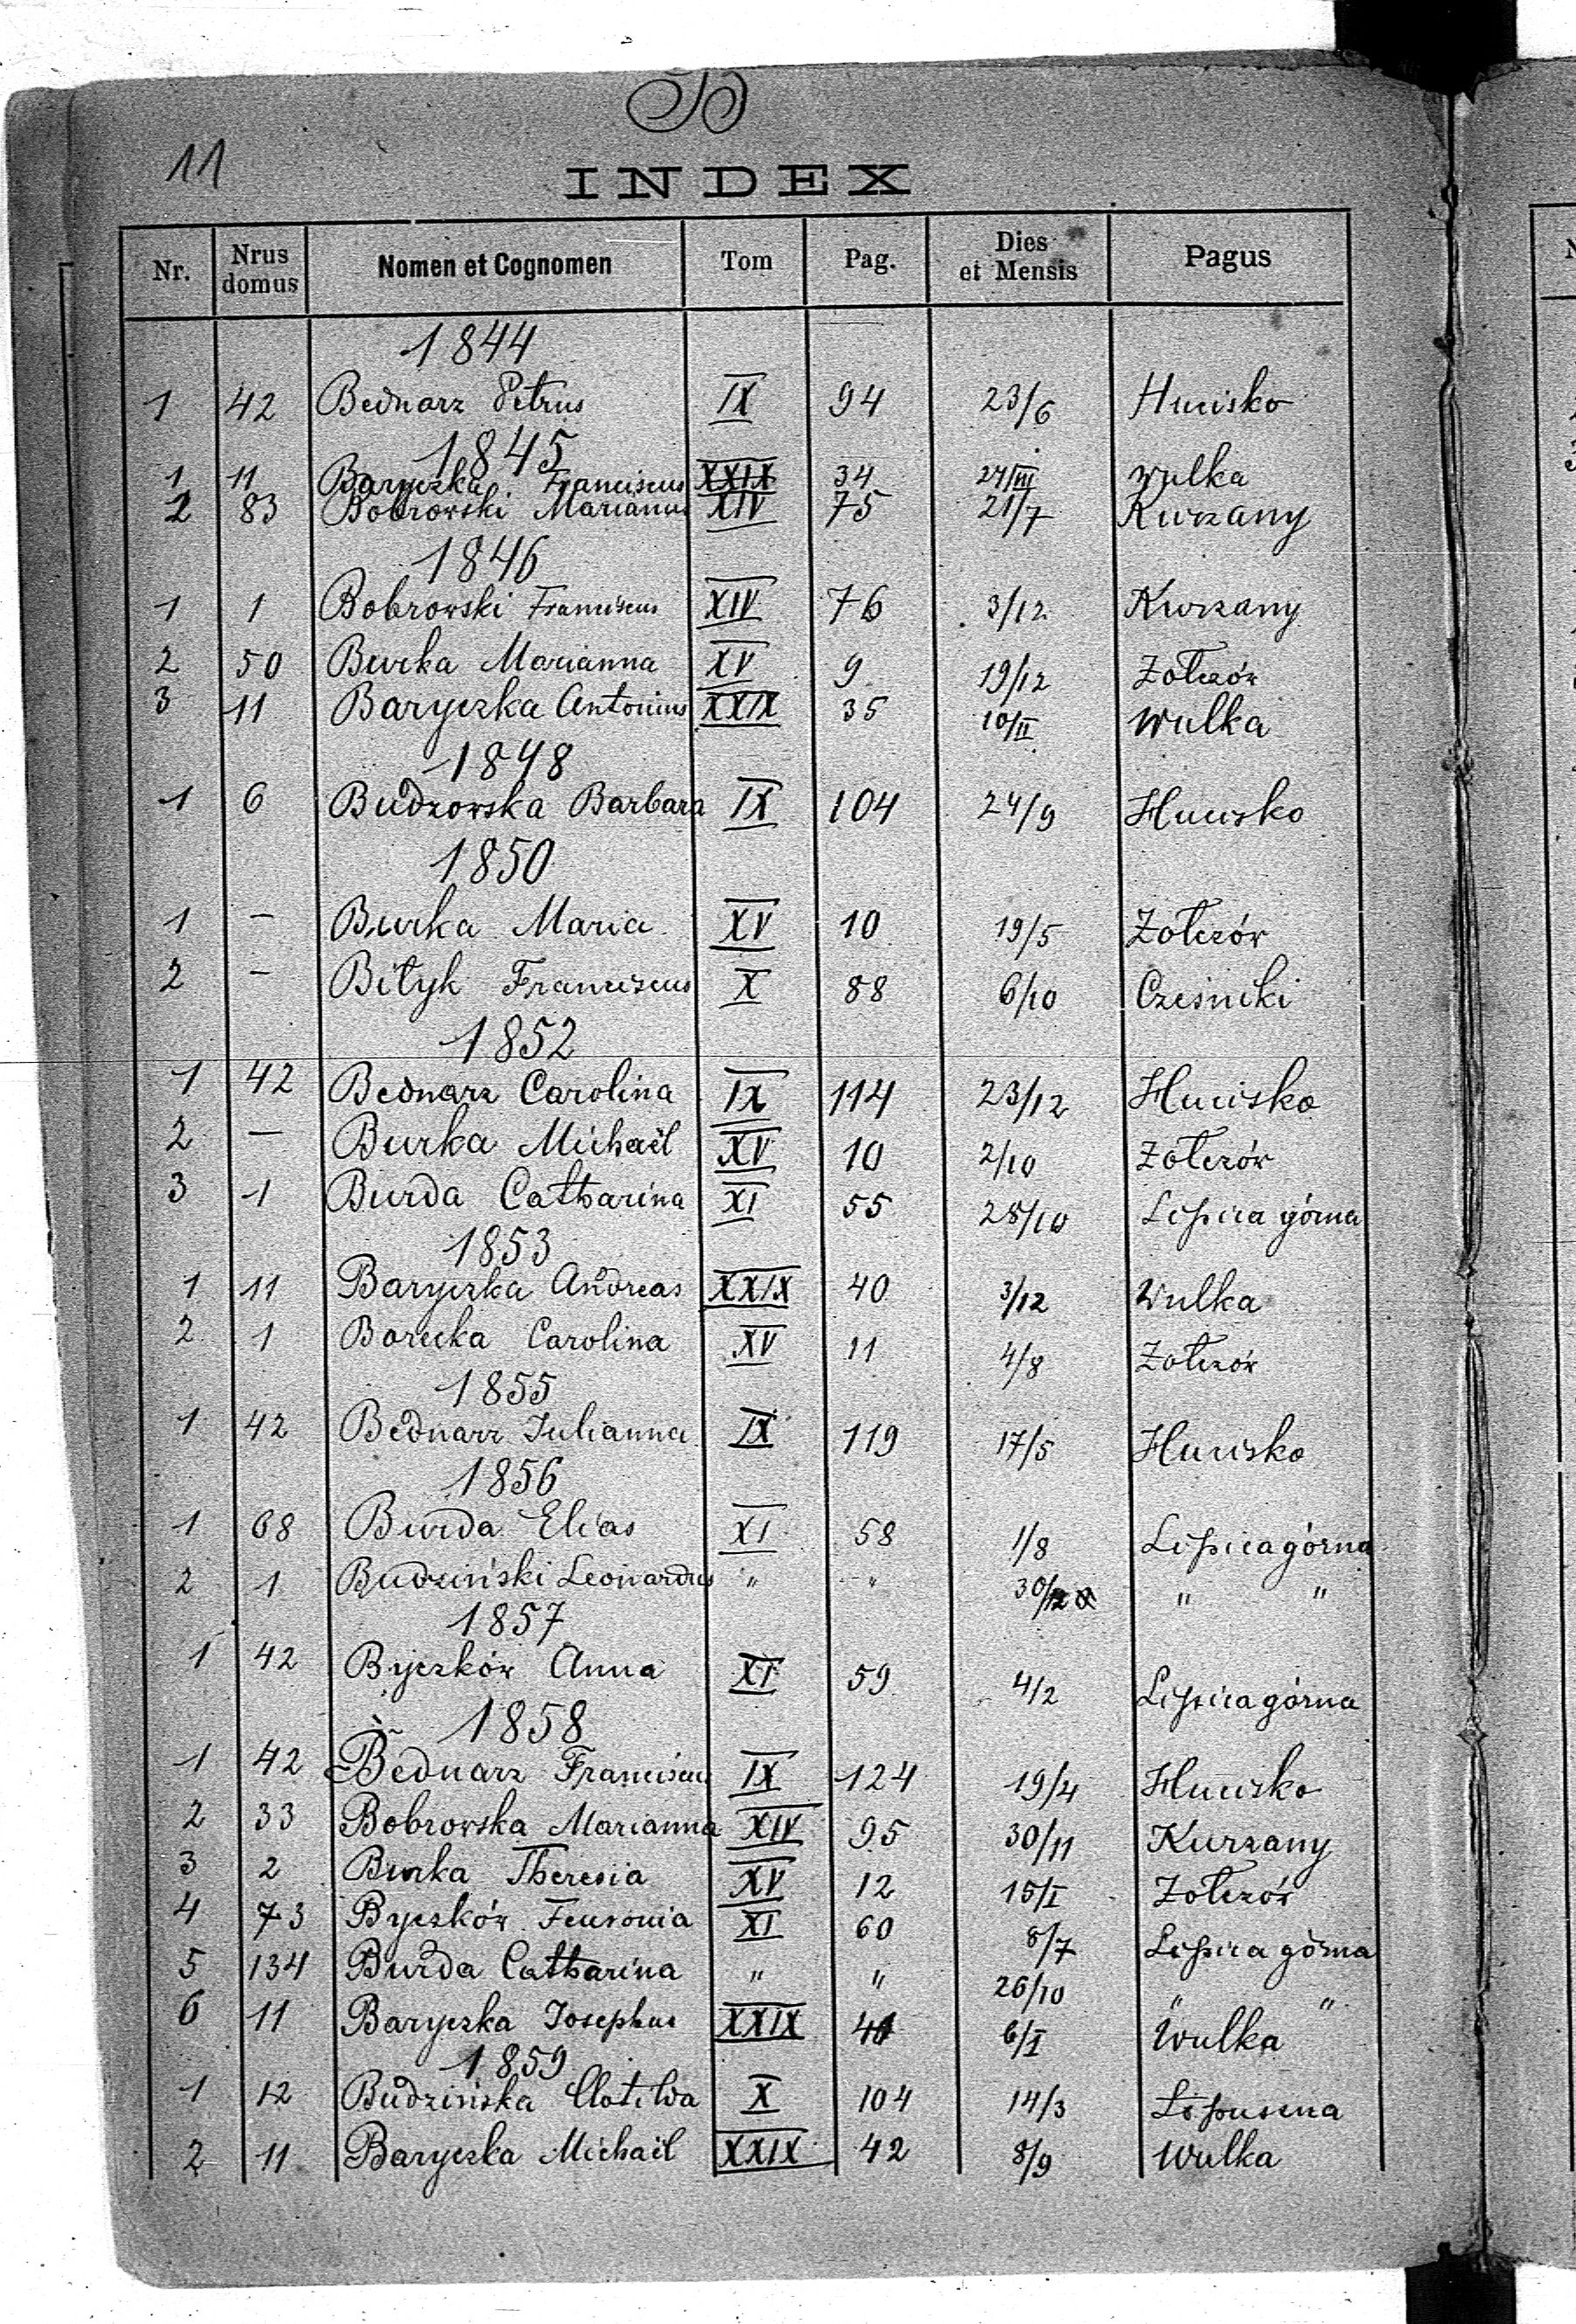 B
11
INDEX
Nr. Nrus domus Nomen et Cognomen Tom Pag. Dies et Mensis Pagus
1844
1 42 Bednarz Petrus IX 94 23/6 Hucisko
1845
1 11 Baryczka Franciscus XXIX 34 24/III Wulka
2 83 Bobrowski Marianus XIV 75 21/7 Kurzany
1846
1 1 Bobrowski Franciscus XIV 76 3/12 Kurzany
2 50 Burka Marianna XV 9 19/12 Żołczów
3 11 Baryczka Antonius XXIX 35 10/II Wulka
1848
1 6 Budzowska Barbara IX 104 24/9 Hucisko
1850
1 — Burka Maria XV 10 19/5 Żołczów
2 — Bityk Franciscus X 88 6/10 Cześniki
1852
1 42 Bednarz Carolina IX 114 23/12 Hucisko
2 — Burka Michaël XV 10 2/10 Żołczów
3 1 Burda Catharina XI 55 28/10 Lipica górna
1853
1 11 Baryczka Andreas XXIX 40 3/12 Wulka
2 1 Borecka Carolina XV 11 4/8 Żołczów
1855
1 42 Bednarz Julianna IX 119 17/5 Hucisko
1856
1 68 Burda Elias XI 58 1/8 Lipica górna
2 1 Budziński Leonardus " " 30/12 " "
1857
1 42 Byczków Anna XI 59 4/2 Lipica górna
1858
1 42 Bednarz Franciscus IX 124 19/4 Hucisko
2 33 Bobrowska Marianna XIV 95 30/11 Kurzany
3 2 Burka Theresia XV 12 15/I Żołczów
4 73 Byczków XI 60 8/7 Lipica górna
5 134 Burda Catharina " " 26/10 " "
6 11 Baryczka Josephus XXIX 41 6/I Wulka
1859
1 12 Budzińska Clotilda X 104 14/3
2 11 Baryczka Michaël XXIX 42 8/9 Wulka